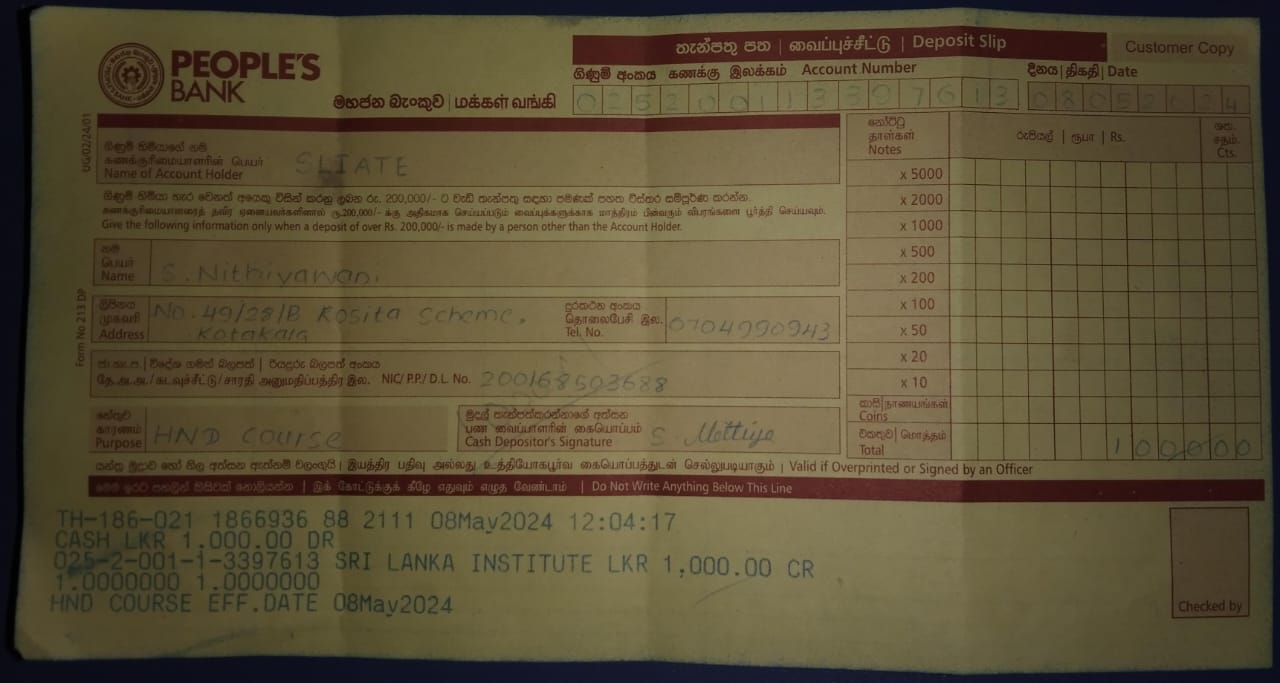 PEOPLE'S
BANK
මහජන බැංකුව | மக்கள் வங்கி
තැන්පතු පත | வைப்புச்சீட்டு | Deposit Slip
Customer Copy
ගිණුම් අංකය கணக்கு இலக்கம் Account Number
දිනය | திகதி | Date
025200113397613
08052024
UG/02/24/01
ගිණුම් හිමියාගේ නම
கணக்குரிமையாளரின் பெயர்
Name of Account Holder
SLIATE
ගිණුම් හිමියා හැර වෙනත් අයෙකු විසින් කරනු ලබන රු. 200,000/- ට වැඩි තැන්පතු සඳහා පමණක් පහත විස්තර සම්පූර්ණ කරන්න.
கணக்குரிமையாளரைத் தவிர ஏனையவர்களினால் ரூ.200,000/- க்கு அதிகமாக செய்யப்படும் வைப்புக்களுக்காக மாத்திரம் பின்வரும் விபரங்களை பூர்த்தி செய்யவும்.
Give the following information only when a deposit of over Rs. 200,000/- is made by a person other than the Account Holder.
නම
பெயர்
Name
S. Nithiyawani
ලිපිනය
முகவரி
Address
No. 49/28/B Rosita Scheme,
Kotakala
දුරකථන අංකය
தொலைபேசி இல.
Tel. No.
0704990943
Form No 213 DP
ජා.හැ.ප. | විදේශ ගමන් බලපත් | රියදුරු බලපත් අංකය
தே.அ.அ./கடவுச்சீட்டு/சாரதி அனுமதிப்பத்திர இல. NIC/ P.P./ D.L. No.
200168503688
හේතුව
காரணம்
Purpose
HND Course
මුදල් තැන්පත්කරන්නාගේ අත්සන
பண வைப்பாளரின் கையொப்பம்
Cash Depositor's Signature
S.
නෝට්ටු
தாள்கள்
Notes
රුපියල් | ரூபா | Rs.
ශත.
சதம்.
Cts.
x 5000
x 2000
x 1000
x 500
x 200
x 100
x 50
x 20
x 10
කාසි | நாணயங்கள்
Coins
එකතුව | மொத்தம்
Total
100000
යන්ත්‍ර මුද්‍රාව හෝ නිල අත්සන ඇත්නම් වලංගුයි | இயந்திர பதிவு அல்லது உத்தியோகபூர்வ கையொப்பத்துடன் செல்லுபடியாகும் | Valid if Overprinted or Signed by an Officer
මෙම ඉරට පහලින් කිසිවක් නොලියන්න | இக் கோட்டுக்குக் கீழே எதுவும் எழுத வேண்டாம் | Do Not Write Anything Below This Line
TH-186-021 1866936 88 2111 08May2024 12:04:17
CASH LKR 1.000.00 DR
025-2-001-1-3397613 SRI LANKA INSTITUTE LKR 1,000.00 CR
1.0000000 1.0000000
HND COURSE EFF.DATE 08May2024
Checked by